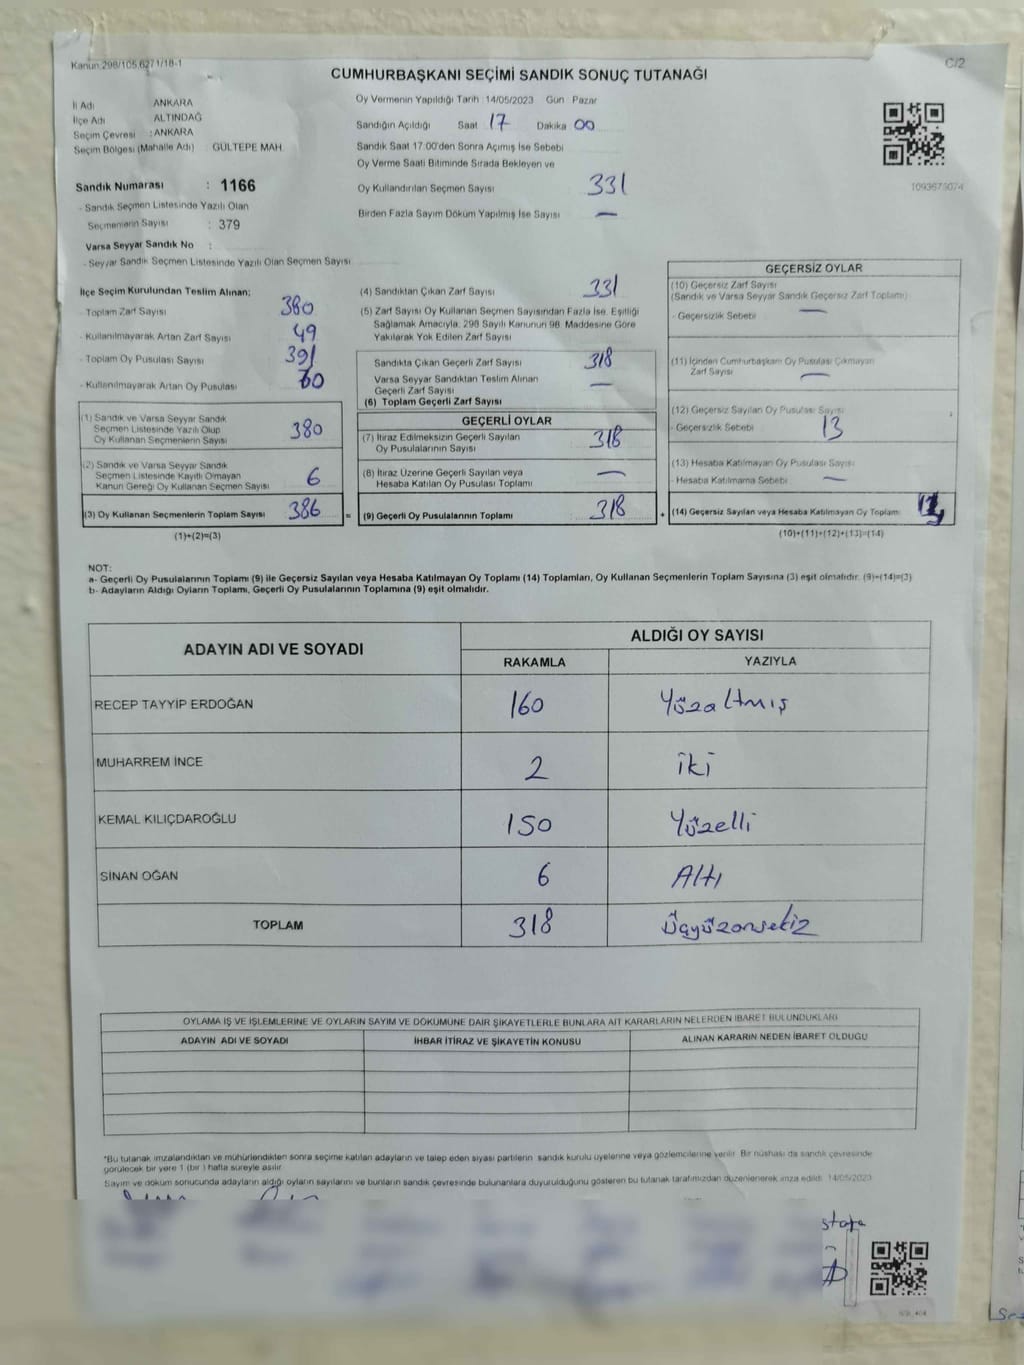 Kanun 298/105,6271/18-1
C/2
CUMHURBAŞKANI SEÇİMİ SANDIK SONUÇ TUTANAĞI
İl Adı ANKARA
İlçe Adı ALTINDAĞ
Seçim Çevresi : ANKARA
Seçim Bölgesi (Mahalle Adı) GÜLTEPE MAH.
Oy Vermenin Yapıldığı Tarih 14/05/2023 Gün Pazar
Sandığın Açıldığı Saat 17 Dakika 00
Sandık Saat 17.00'den Sonra Açılmış İse Sebebi
Oy Verme Saati Bitiminde Sırada Bekleyen ve
Oy Kullandırılan Seçmen Sayısı 331
Birden Fazla Sayım Döküm Yapılmış İse Sayısı —
1093673074
Sandık Numarası : 1166
- Sandık Seçmen Listesinde Yazılı Olan
Seçmenlerin Sayısı : 379
Varsa Seyyar Sandık No :
- Seyyar Sandık Seçmen Listesinde Yazılı Olan Seçmen Sayısı
İlçe Seçim Kurulundan Teslim Alınan;
- Toplam Zarf Sayısı 380
- Kullanılmayarak Artan Zarf Sayısı 49
- Toplam Oy Pusulası Sayısı 391
- Kullanılmayarak Artan Oy Pusulası 60
(1) Sandık ve Varsa Seyyar Sandık
Seçmen Listesinde Yazılı Olup
Oy Kullanan Seçmenlerin Sayısı 380
(2) Sandık ve Varsa Seyyar Sandık
Seçmen Listesinde Kayıtlı Olmayan
Kanun Gereği Oy Kullanan Seçmen Sayısı 6
(3) Oy Kullanan Seçmenlerin Toplam Sayısı 386 =
(1)+(2)=(3)
(4) Sandıktan Çıkan Zarf Sayısı 331
(5) Zarf Sayısı Oy Kullanan Seçmen Sayısından Fazla İse, Eşitliği
Sağlamak Amacıyla; 298 Sayılı Kanunun 98. Maddesine Göre
Yakılarak Yok Edilen Zarf Sayısı
Sandıkta Çıkan Geçerli Zarf Sayısı 318
Varsa Seyyar Sandıktan Teslim Alınan
Geçerli Zarf Sayısı —
(6) Toplam Geçerli Zarf Sayısı
GEÇERLİ OYLAR
(7) İtiraz Edilmeksizin Geçerli Sayılan
Oy Pusulalarının Sayısı 318
(8) İtiraz Üzerine Geçerli Sayılan veya
Hesaba Katılan Oy Pusulası Toplamı —
(9) Geçerli Oy Pusulalarının Toplamı 318 +
GEÇERSİZ OYLAR
(10) Geçersiz Zarf Sayısı
(Sandık ve Varsa Seyyar Sandık Geçersiz Zarf Toplamı)
- Geçersizlik Sebebi —
(11) İçinden Cumhurbaşkanı Oy Pusulası Çıkmayan
Zarf Sayısı —
(12) Geçersiz Sayılan Oy Pusulası Sayısı
- Geçersizlik Sebebi 13
(13) Hesaba Katılmayan Oy Pusulası Sayısı
- Hesaba Katılmama Sebebi —
(14) Geçersiz Sayılan veya Hesaba Katılmayan Oy Toplamı
(10)+(11)+(12)+(13)=(14)
NOT:
a- Geçerli Oy Pusulalarının Toplamı (9) ile Geçersiz Sayılan veya Hesaba Katılmayan Oy Toplamı (14) Toplamları, Oy Kullanan Seçmenlerin Toplam Sayısına (3) eşit olmalıdır. (9)+(14)=(3)
b- Adayların Aldığı Oyların Toplamı, Geçerli Oy Pusulalarının Toplamına (9) eşit olmalıdır.
ADAYIN ADI VE SOYADI
ALDIĞI OY SAYISI
RAKAMLA YAZIYLA
RECEP TAYYİP ERDOĞAN 160 Yüzaltmış
MUHARREM İNCE 2 iki
KEMAL KILIÇDAROĞLU 150 Yüzelli
SİNAN OĞAN 6 Altı
TOPLAM 318 Üçyüzonsekiz
OYLAMA İŞ VE İŞLEMLERİNE VE OYLARIN SAYIM VE DÖKÜMÜNE DAİR ŞİKAYETLERLE BUNLARA AİT KARARLARIN NELERDEN İBARET BULUNDUKLARI
ADAYIN ADI VE SOYADI İHBAR İTİRAZ VE ŞİKAYETİN KONUSU ALINAN KARARIN NEDEN İBARET OLDUĞU
*Bu tutanak imzalandıktan ve mühürlendikten sonra seçime katılan adayların ve talep eden siyasi partilerin sandık kurulu üyelerine veya gözlemcilerine verilir. Bir nüshası da sandık çevresinde
görülecek bir yere 1 (bir ) hafta süreyle asılır.
Sayım ve döküm sonucunda adayların aldığı oyların sayılarını ve bunların sandık çevresinde bulunanlara duyurulduğunu gösteren bu tutanak tarafımızdan düzenlenerek imza edildi. 14/05/2023